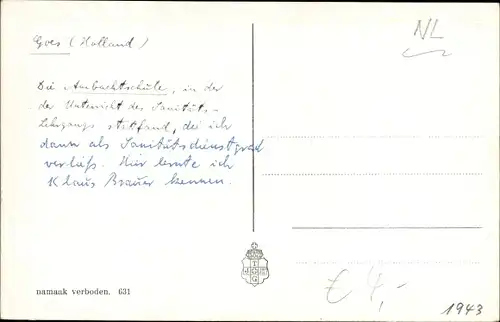 Goes (Holland)
NL
Die Ambachtschule, in der
der Unterricht des Sanitäts-
Lehrgangs stattfand, die ich
dann als Sanitätsdienstgrad
verließ. Hier lernte ich
Klaus Brauer kennen.
namaak verboden. 631
€ 4,-
1943